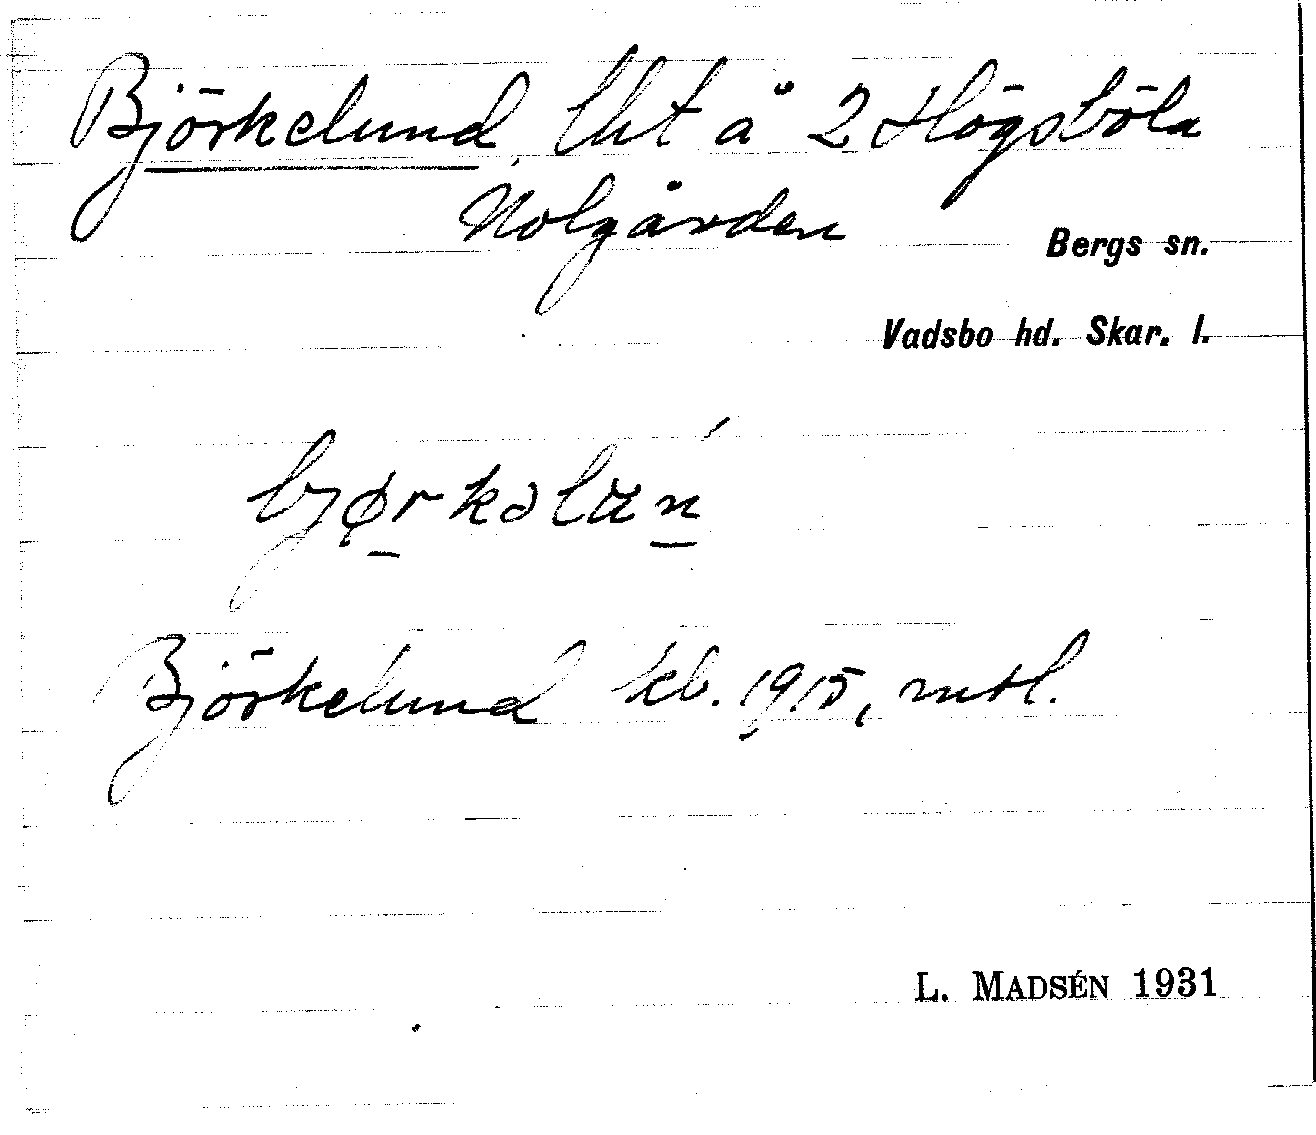 Björkelund, lht å 2 Högsböla
Nolgården
Bergs sn.
Vadsbo hd. Skar. l.
bjørkəlun̲´
Björkelund kb. 1915, mtl.
L. MADSÉN 1931